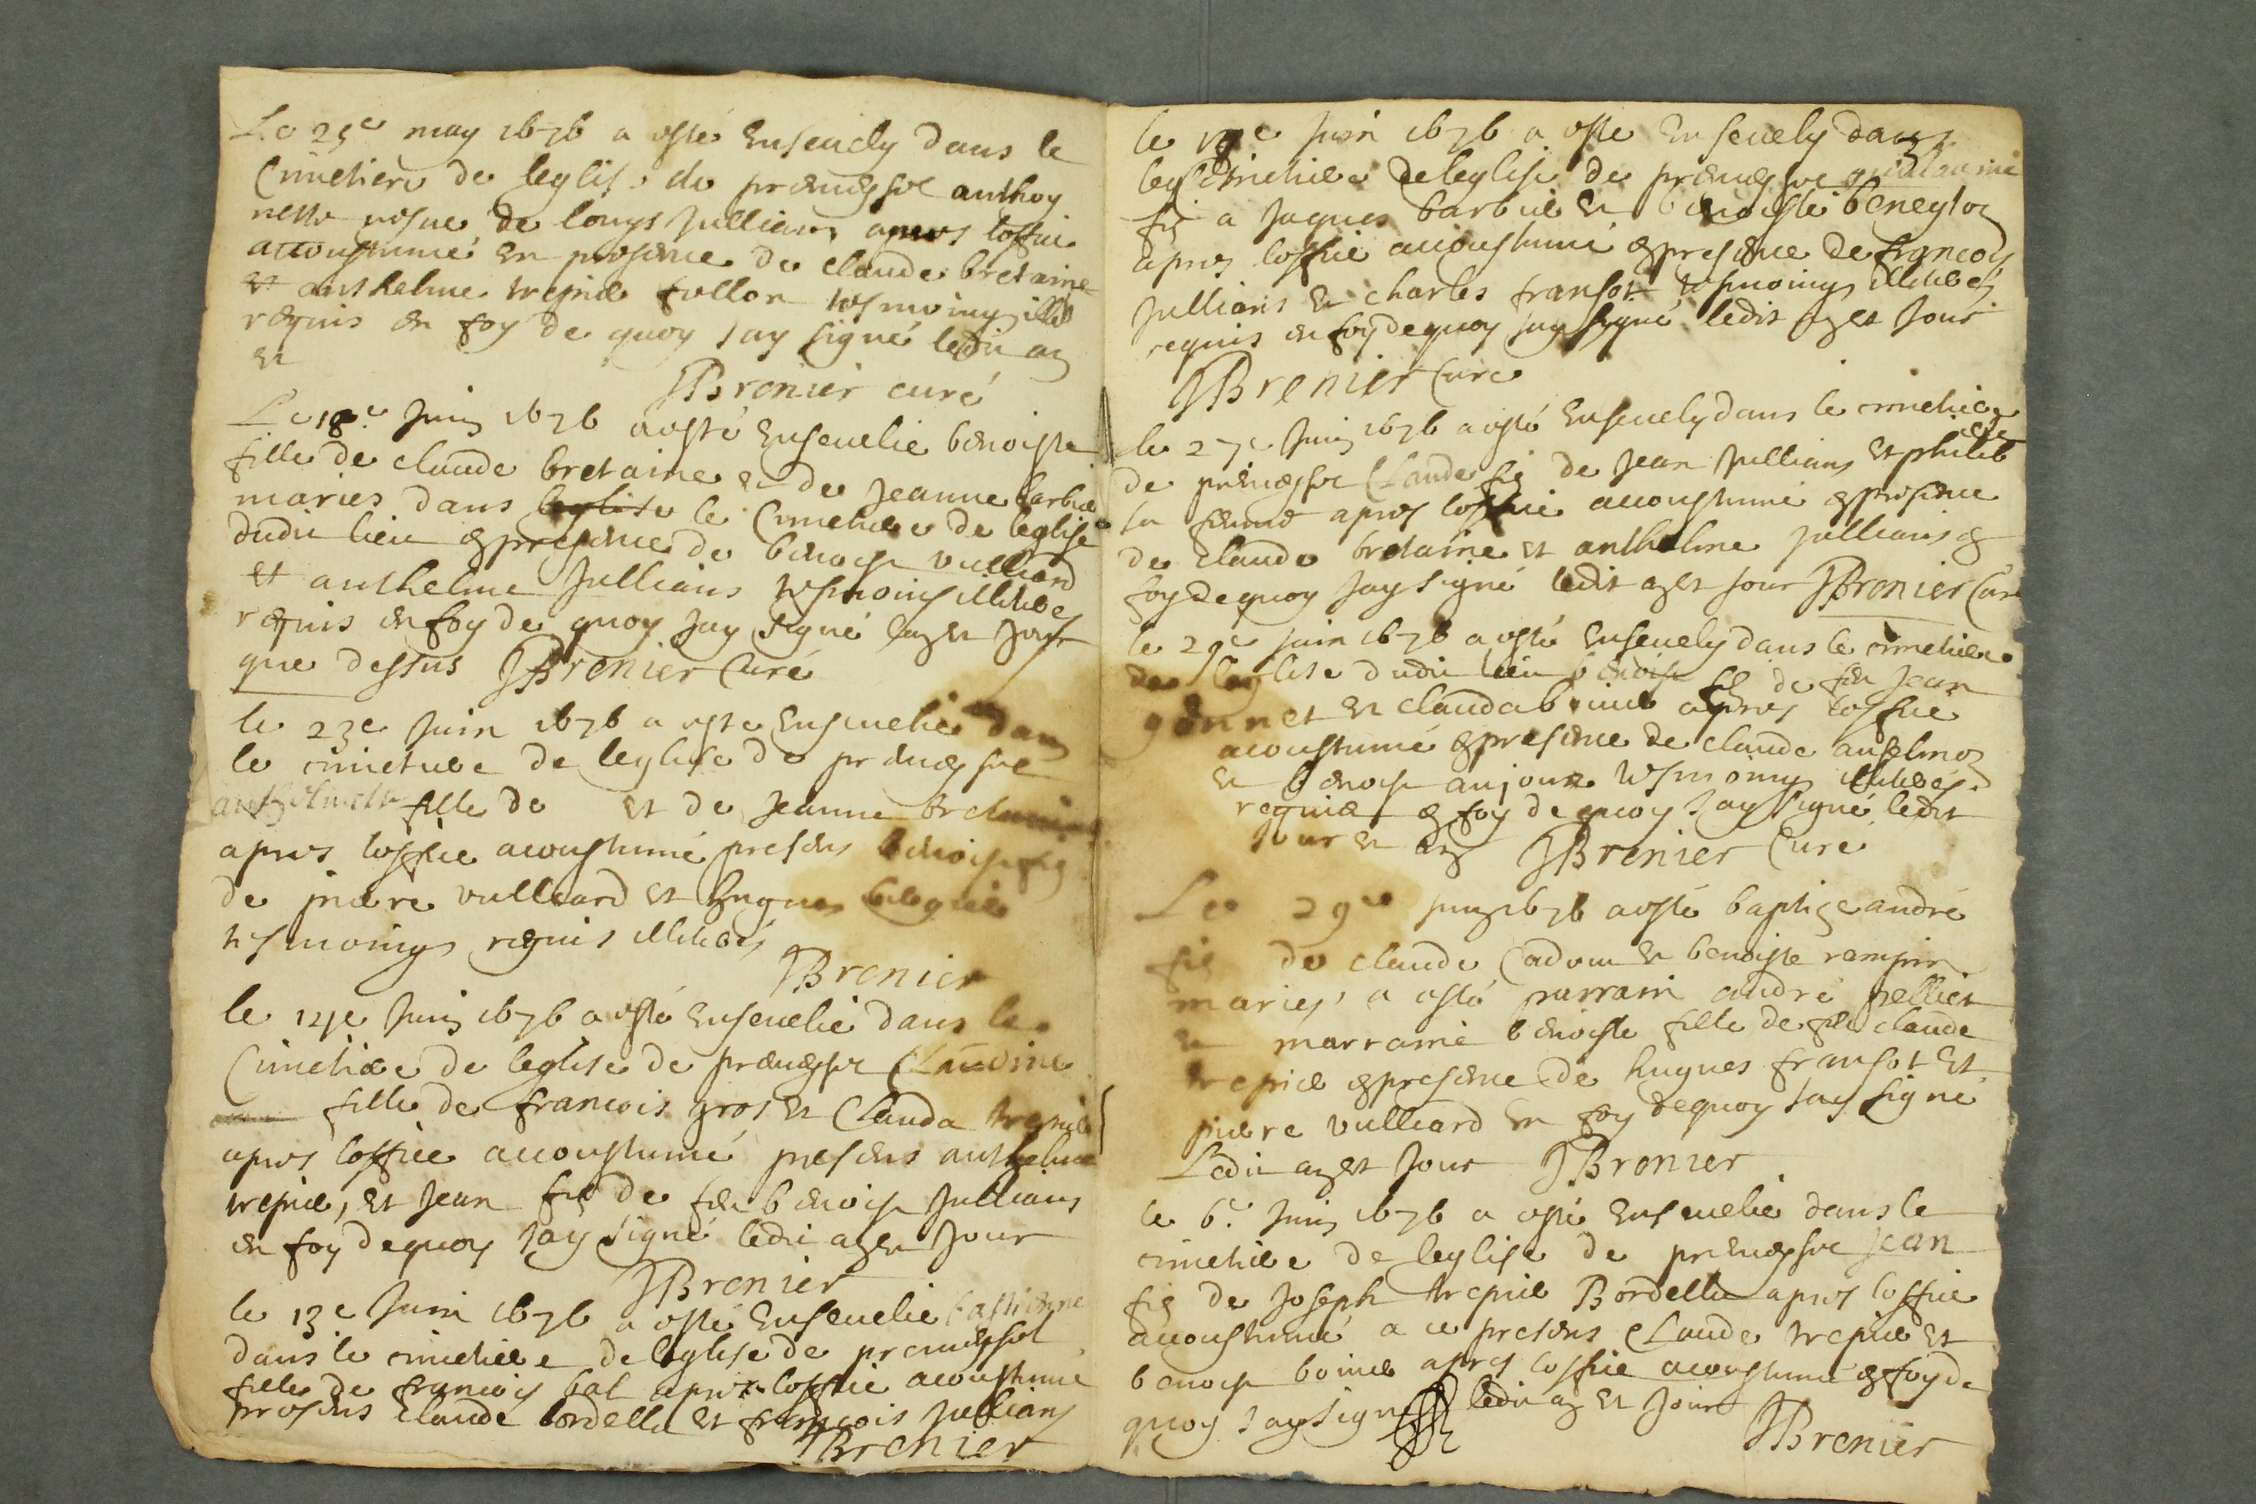 Le 25e may 1676 a esté Enseuely dans le
Cimetiere de leglise de premeyssel anthoy
nette vefue de louys Jullians apres loffice
accoustumé en presence de claude bretaine
et anthelme trepier follon tesmoings illi
requis en foy de quoy Jay signé ledit an
et
JBrenier curé
Le 18e Juin 1676 a esté Enseuelie benoiste
fille de claude bretaine et de Jeanne barbier
maries dans leglise le Cimetiere de leglise
dudit lieu en presence de benoist vulliard
et anthelme Jullians tesmoins illiteres
requis en foy de quoy Jay signé lan et Jour
que dessus JBrenier Curé
le 23e Juin 1676 a este Enseuelie dans
le cimetiere de leglise de premeyssel
anthelmette fille de et de Jeanne
apres loffice accoustumé presens benoist fis
de pierre vulliard et hugues
tesmoings requis illiteres
JBrenier
le 12e Juin 1676 a esté Enseuelie dans le
Cimetiere de leglise de premeyssel Claudine
fille de francois gros et Clauda trepier
apres loffice accoustumé presens anthelme
trepier, et Jean fis de feu benoist Jullians
en foy de quoy Jay signé ledit an et Jour
JBrenier
le 13e Juin 1676 a esté Enseuelie bastienne
dans le cimetiere de leglise de premeyssel
fille de francois bal apres loffice acoustumé
presens Claude bordella et francois Jullians
JBrenier
le Juin 1676 a este Enseuely dans
le Cimetiere de leglise de premeyssel
fis a Jaques barbier et benoiste beneyton
apres loffice accoustumé en presence de francois
Jullians et charles fransot tesmoings illiterés
requis en foy de quoy Jay signé ledit an et Jour
JBrenier Curé
le 27e Juin 1676 a esté Enseuely dans le cimetiere
de premeyssel Claude fis de Jean Jullians et philib
sa femme apres loffice accoustumé en presence
de Claude bretaine et anthelme Jullians en
foy de quoy Jay signé ledit an et Jour JBrenier Curé
le 29e Juin 1676 a esté Enseuely dans le cimetiere
de leglise dudit lieu benoist fis de feu Jean
gonnet et clauda apres loffice
acoustumé en presence de claude anselmoz
et benoist tesmoings illiterés
requis en foy de quoy Jay signé ledit
Jour et an JBrenier Curé
Le 29e Juin 1676 a esté baptize andré
fis de claude Cadoux et benoiste rempin
maries, a esté parrain andré pellier
et marraine benoiste fille de feu claude
trepier en presence de hugues fransot et
pierre vulliard en foy de quoy Jay signé
Ledit an et Jour JBrenier
le 6e Juin 1676 a esté Enseuelie dans le
cimetiere de leglise de premeyssel Jean
fis de Joseph trepier Bordella apres loffice
accoustumé a ce presens Claude trepier et
benoist apres loffice acoustumé en foy de
quoy Jay signé ledit an et Jour
JBrenier